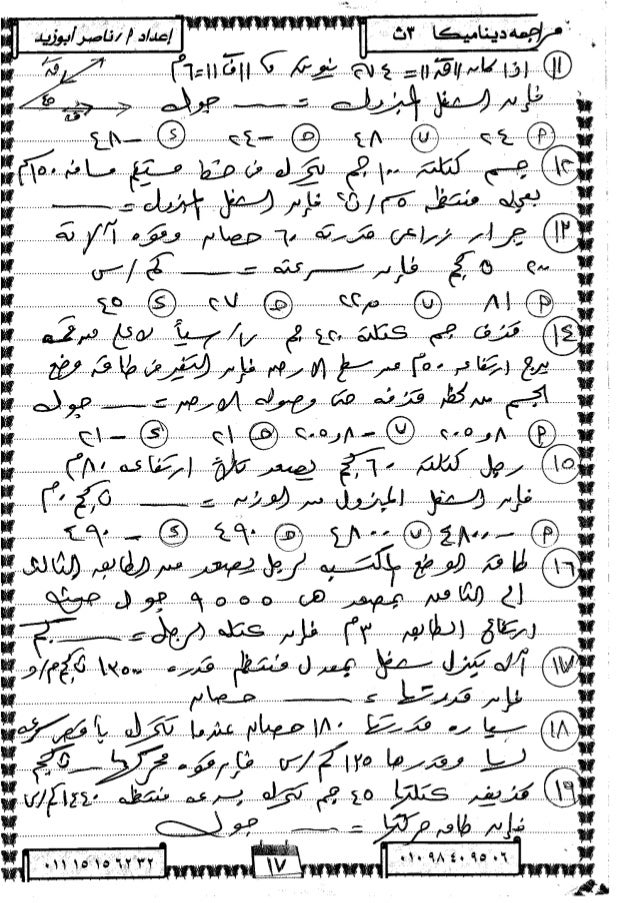 مراجعه ديناميكا ٣ث
إعداد م/ ناصر أبوزيد
١١ اذا كان ||ق|| = ٤ نيوتن ، ||ف|| = ٦ م
فإن الشغل المبذول = ـــ جول
P ٢٤ ب ٤٨ ج -٢٤ د -٤٨
١٢ جسم كتلته ١٠٠ جم يتحرك فى خط مستقيم مسافه ١٥٠ سم
بعجله منتظمه ٥ سم/ث٢ فإن الشغل المبذول = ـــ
١٣ جرار زراعى قدرته ٦٠ حصان وقوه آلاته
٢٠٠ ث كجم فإن سرعته = ـــ كم/س
P ٨١ ب ٢٢٫٥ ج ٢٧ د ٤٥
١٤ قذف جسم كتلته ٤٢٠ جم رأسياً لاعلى من قمه
برج ارتفاعه ٥٠ م من سطح الارض فإن التغير فى طاقه وضع
الجسم من لحظه قذفه حتى وصوله الارض = ـــ جول
P ٢٠٥٫٨ ب -٢٠٥٫٨ ج ٢١ د -٢١
١٥ رجل كتلته ٦٠ كجم يصعد تلاً ارتفاعه ٨٠ م
فإن الشغل المبذول من الوزن = ـــ ث كجم . م
P -٤٨٠٠ ب ٤٨٠٠ ج ٤٩٠ د -٤٩٠
١٦ طاقه الوضع المكتسبه لرجل يصعد من الطابق الثالث
الى الثامن بمصعد هى ٩٥٥٥ جول حيث
ارتفاع الطابق ٣ م فإن كتله الرجل = ـــ كجم
١٧ آله تبذل شغل بمعدل منتظم قدره ١٣٥٠٠ ث كجم م/د
فإن قدرتها = ـــ حصان
١٨ سياره قدرتها ١٨٠ حصان عندما تتحرك بأقصى سرعه
لها وقدرها ١٣٥ كم/س فإن قوه محركها ـــ ث كجم
١٩ قذيفه كتلتها ٤٥ جم تتحرك بسرعه منتظمه ١٤٤٠ كم/س
فإن طاقه حركتها = ـــ جول
٠١١ ١٥ ١٥ ٦٢ ٣٢
١٧
٠١٠ ٩٨ ٤٠ ٩٥ ٠٦